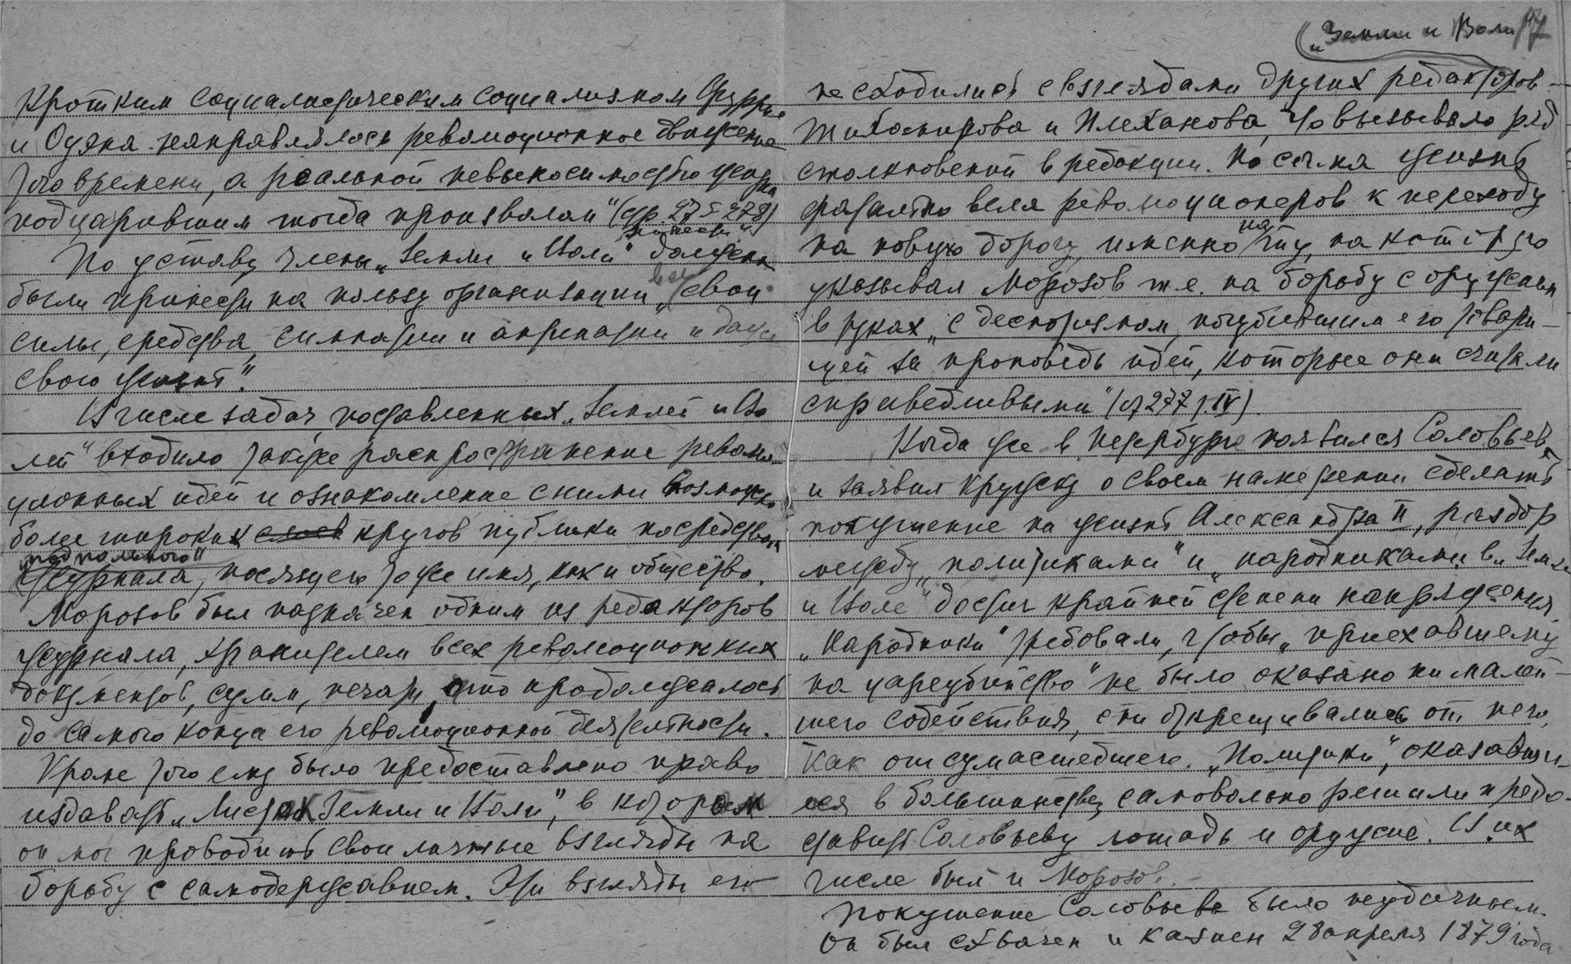 Кротким социалистическим социализмом Фурье
и Оуэна направлялось революционное движение
того времени, а реальной невыносимостью жизни
под царившим тогда произволом" (стр. 275-278)
По уставу члены „Земли и Воли" должны
были принести на пользу организации все свои
силы, средства, симпатии и антипатии и даже
свою жизнь".
В числе задач, поставленных „Землей и Во
лей" входило также распространение револю-
ционных идей и ознакомление с ними возможно
более широких слоев кругов публики посредством
„подпольного"
журнала, носящего то же имя, как и общество.
Морозов был назначен одним из редакторов
журнала, хранителем всех революционных
документов, сумм, печати, что продолжалось
до самого конца его революционной деятельности.
Кроме того ему было предоставлено право
издавать „Листок Земли и Воли", в котором
он мог проводить свои личные взгляды на
борьбу с самодержавием. Эти взгляды его
(„Земля и Воля") 17
не сходились с взглядами других редакторов -
Тихомирова и Плеханова, что вызывало ряд
столкновений в редакции. Но сама жизнь
фатально вела революционеров к переходу
на новую дорогу, именно на ту, на которую
указывал Морозов т.е. на борьбу с оружием
в руках „с деспотизмом, погубившим его товари-
щей за проповедь идей, которые они считали
справедливыми" (ст 277 т. IV).
Когда же в Петербурге появился Соловьев
и заявил кружку о своем намерении сделать
покушение на жизнь Александра II, раздор
между „политиками" и „народниками в „Земле
и Воле" достиг крайней степени напряжения.
„Народники" требовали, чтобы „приехавшему
на цареубийство" не было оказано ни малей-
шего содействия, они открещивались от него,
как от сумасшедшего. „Политики", оказавши-
еся в большинстве, самовольно решили предо-
ставить Соловьеву лошадь и оружие. В их
числе был и Морозов.
Покушение Соловьева было неудачным.
Он был схвачен и казнен 28 апреля 1879 года